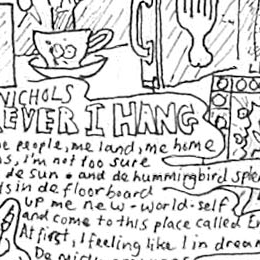 NICHOLS
EVER I HANG
people, me land, me home
i'm not too sure
de sun. and de hummingbird
in de floorboard
up me new-world-self
and come to this place called
At first, I feeling like I in
De